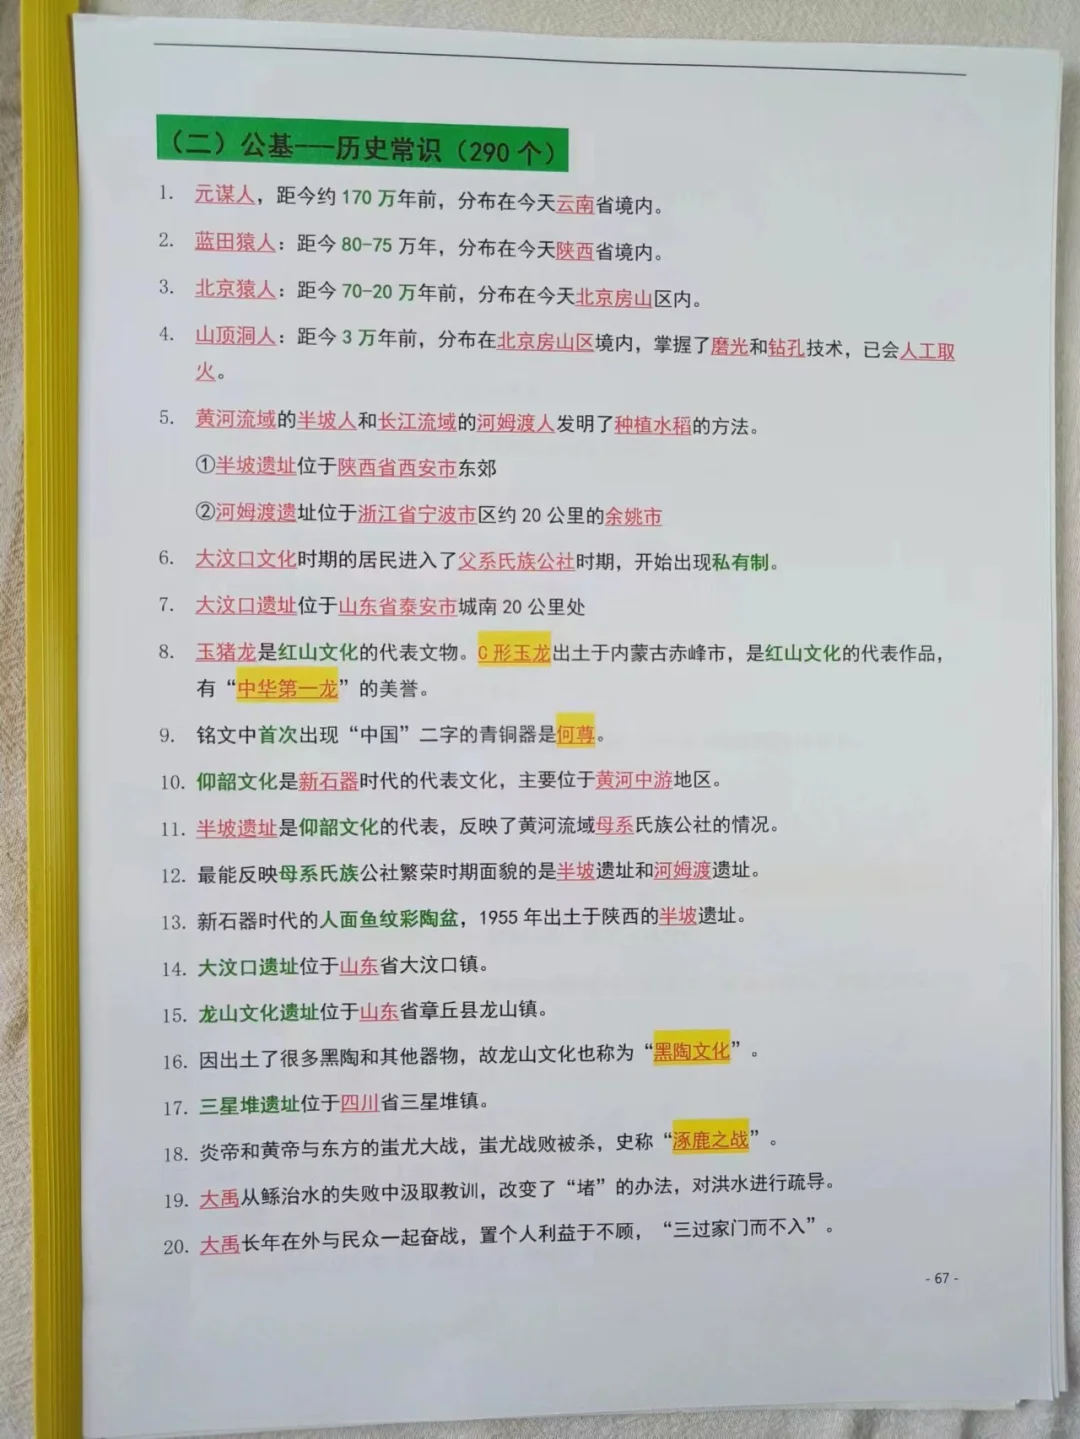 （二）公基---历史常识（290 个）
1. 元谋人，距今约 170 万年前，分布在今天云南省境内。
2. 蓝田猿人：距今 80-75 万年，分布在今天陕西省境内。
3. 北京猿人：距今 70-20 万年前，分布在今天北京房山区内。
4. 山顶洞人：距今 3 万年前，分布在北京房山区境内，掌握了磨光和钻孔技术，已会人工取
火。
5. 黄河流域的半坡人和长江流域的河姆渡人发明了种植水稻的方法。
①半坡遗址位于陕西省西安市东郊
②河姆渡遗址位于浙江省宁波市区约 20 公里的余姚市
6. 大汶口文化时期的居民进入了父系氏族公社时期，开始出现私有制。
7. 大汶口遗址位于山东省泰安市城南 20 公里处
8. 玉猪龙是红山文化的代表文物。C 形玉龙出土于内蒙古赤峰市，是红山文化的代表作品，
有“中华第一龙”的美誉。
9. 铭文中首次出现“中国”二字的青铜器是何尊。
10. 仰韶文化是新石器时代的代表文化，主要位于黄河中游地区。
11. 半坡遗址是仰韶文化的代表，反映了黄河流域母系氏族公社的情况。
12. 最能反映母系氏族公社繁荣时期面貌的是半坡遗址和河姆渡遗址。
13. 新石器时代的人面鱼纹彩陶盆，1955 年出土于陕西的半坡遗址。
14. 大汶口遗址位于山东省大汶口镇。
15. 龙山文化遗址位于山东省章丘县龙山镇。
16. 因出土了很多黑陶和其他器物，故龙山文化也称为“黑陶文化”。
17. 三星堆遗址位于四川省三星堆镇。
18. 炎帝和黄帝与东方的蚩尤大战，蚩尤战败被杀，史称“涿鹿之战”。
19. 大禹从鲧治水的失败中汲取教训，改变了“堵”的办法，对洪水进行疏导。
20. 大禹长年在外与民众一起奋战，置个人利益于不顾，“三过家门而不入”。
- 67 -